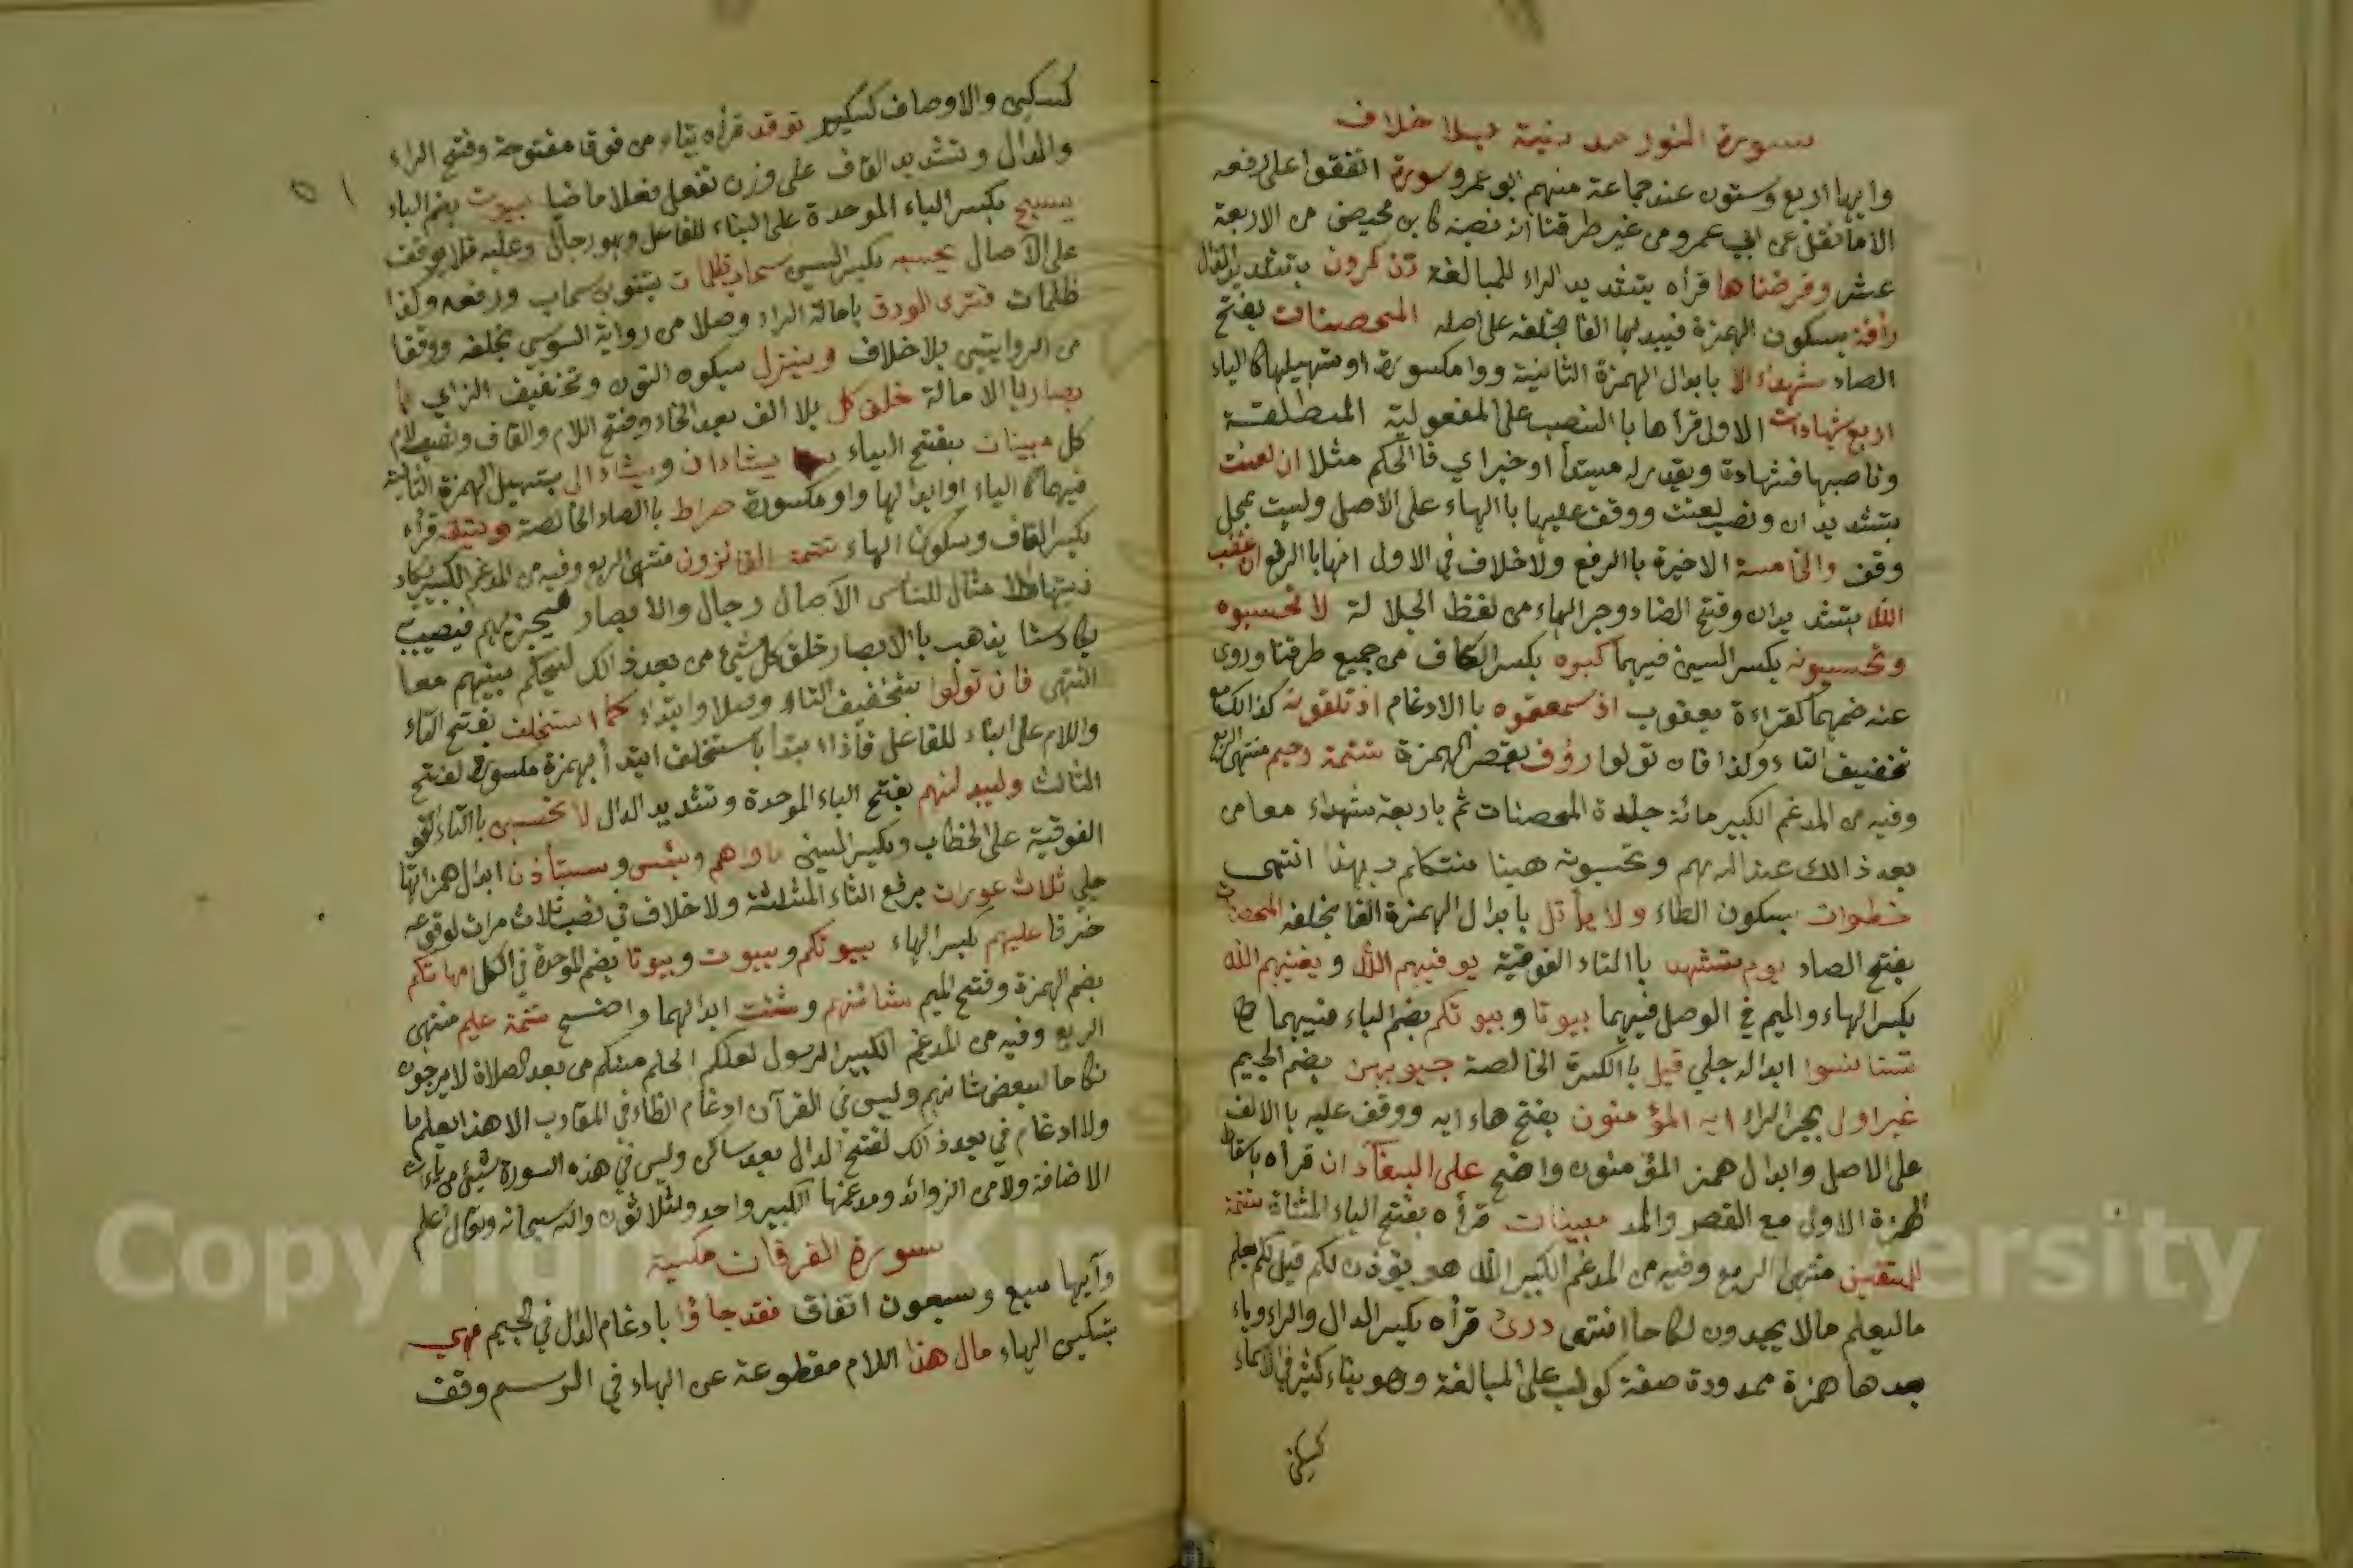 سورة النور مدنية بلا خلاف
وايها اربع وستون عند جماعة منهم ابو عمرو سورة اتفقوا على رفعه
الا ما نقل عن ابي عمرو من غير طرقنا انه نصبه كابن محيصن من الاربعة
عشر وفرضناها قرأه بتشديد الراء للمبالغة تذكرون بتشديد الذال
رأفة بسكون الهمزة فيبدلها الفا بخلفه على اصله المحصنات بفتح
الصاد شهداء الا بابدال الهمزة الثانية واوا مكسورة او تسهيلها كالياء
اربع شهادات الاول قرأها باالنصب على المفعولية المطلقة
وناصبها فشهادة ويقدر له مبتدأ او خبر اي فاالحكم مثلا ان لعنت
بتشديد ان ونصب لعنت ووقف عليها باالهاء على الاصل وليت بمحل
وقف والخامسة الاخيرة باالرفع ولا خلاف في الاولى انها باالرفع ان غضب
الله بتشديد ان وفتح الضاد وجر الهاء من لفظ الجلالة لا تحسبوه
وتحسبونه بكسر السين فيهما كبره بكسر الكاف من جميع طرقنا وروى
عنه ضمها كقراءة يعقوب اذ سمعتموه باالادغام اذ تلقونه كذالك مع
تخفيف التاء وكذا فان تولوا رؤف بقصر الهمزة تتمة رحيم منتهى الربع
وفيه من المدغم الكبير مائة جلدة المحصنات ثم باربعة شهداء معا من
بعد ذالك عند الله هم وتحسبونه هينا نتكلم بهذا انتهى
خطوات بسكون الطاء ولا يأتل بابدال الهمزة الفا بخلفه المحصنات
بفتح الصاد يوم تشهد باالتاء الفوقية يوفيهم الله ويغنيهم الله
بكسر الهاء والميم في الوصل فيهما بيوتا وبيوتكم بضم الباء فيهما
تستانسوا ابداله جلي قيل باالكسرة الخالصة جيوبهن بضم الجيم
غير اولى بجر الراء ايه المؤمنون بفتح هاء ايه ووقف عليه باالالف
على الاصل وابدال همز المؤمنون واضح على البغآء ان قرأه باسقاط
الهمزة الاولى مع القصر والمد مبينات قرأه بفتح الياء المثناة تتمة
للمتقين منتهى الربع وفيه من المدغم الكبير الله هو يؤذن لكم قيل لكم يعلم
ما ليعلم ما لا يجدون نكاحا انتهى درئ قرأه بكسر الدال والراء وياء
بعدها همزة ممدودة صفة كوكب على المبالغة وهو بناء كثير في الاسماء
كسكين
كسكين والاوصاف كسكير توقد قرأه بتاء من فوق مفتوحة وفتح الراء
والدال وتشديد القاف على وزن تفعل فعلا ماضيا بيوت بضم الباء
يسبح بكسر الباء الموحدة على البناء للفاعل وهو رجال وعليه فلا يوقف
على الآصال يحسبه بكسر السين سحاب ظلمات بتنوين سحاب ورفعه وكذا
ظلمات فترى الودق بامالة الراء وصلا من رواية السوسي بخلفه ووقفا
من الروايتين بلا خلاف وينزل بسكون النون وتخفيف الزاي
بصار باالامالة خلق كل بلا الف بعد الخاء وفتح اللام والقاف ونصب لام
كل مبينات بفتح الياء يشاء ان ويشاء الى بتسهيل الهمزة الثانية
فيهما كالياء او ابدالها واو مكسورة صراط باالصاد الخالصة ويتقه قرأه
بكسر القاف وسكون الهاء تتمة الفائزون منتهى الربع وفيه من المدغم الكبير يكاد
زيتها الامثال للناس الآصال رجال والابصار ليجزيهم فيصيب
يكاد سنا يذهب باالابصار خلق كل شئ من بعد ذالك ليحكم بينهم معا
انتهى فان تولوا بتخفيف التاء وصلا وابتداء كما استخلف بفتح التاء
واللام على البناء للفاعل فاذا ابتدأ باستخلف ابتدأ بهمزة مكسورة لفتح
الثالث وليبدلنهم بفتح الباء الموحدة وتشديد الدال لا تحسبن باالتاء
الفوقية على الخطاب وبكسر السين ماواهم وبئس وستأذن ابدال همزاتها
جلي ثلاث عورات برفع الثاء المثلثة ولا خلاف في نصب ثلاث مرات لوقوعه
ظرفا عليهم بكسر الهاء بيوتكم وبيوت وبيوتا بضم الموحدة في الكل امهاتكم
بضم الهمزة وفتح الميم شانهم وشئت ابدالهما واضح تتمة عليم منتهى
الربع وفيه من المدغم الكبير الرسول لعلكم الحلم منكم من بعد صلاة لا يرجون
نكاحا لبعض شانهم وليس في القرآن ادغام الضاد في المقارب الا هذا يعلم ما
ولا ادغام في بعد ذالك لفتح الدال بعد ساكن وليس في هذه السورة شيئ من ياءات
الاضافة ولا من الزوائد ومدغمها الكبير واحد وثلاثون والله سبحانه وتعالى اعلم
سورة الفرقان مكية
وآيها سبع وسبعون اتفاق فقد جاؤا بادغام الدال في الجيم فهي
بتسكين الهاء مال هذا اللام مقطوعة عن الهاء في الرسم وقف
Copyright © King Saud University